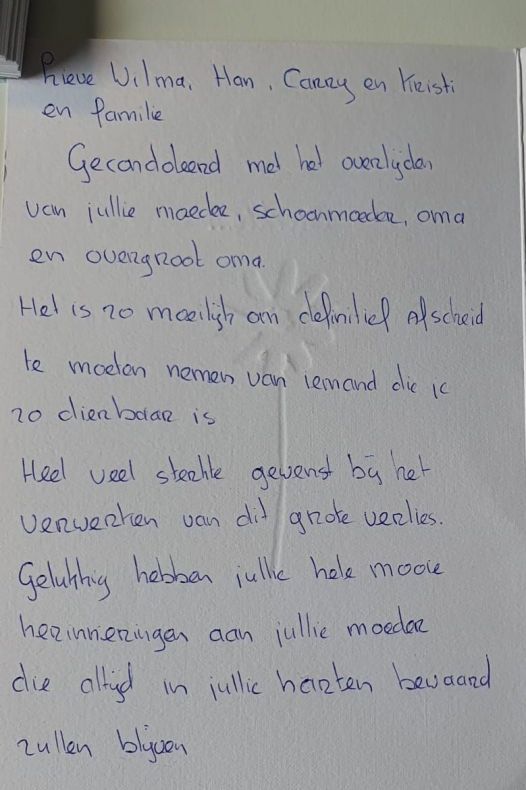 Lieve Wilma, Han, Carry en Kristi
en familie
Gecondoleerd met het overlijden
van jullie moeder, schoonmoeder, oma
en overgroot oma.
Het is zo moeilijk om definitief afscheid
te moeten nemen van iemand die je
zo dierbaar is
Heel veel sterkte gewenst bij het
verwerken van dit grote verlies.
Gelukkig hebben jullie hele mooie
herinneringen aan jullie moeder
die altijd in jullie harten bewaard
zullen blijven